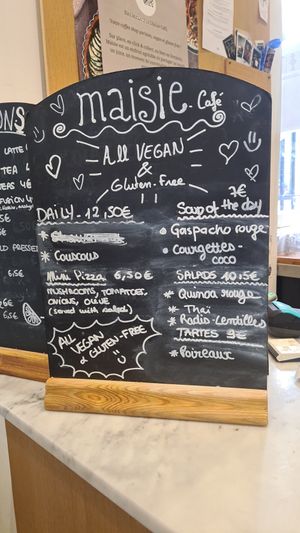 maisie. Café
All VEGAN
&
Gluten-Free
DAILY - 12,50€
* Couscous
Mini Pizza 6,50€
MUSHROOMS, TOMATOES,
ONIONS, OLIVE
(served with salad)
All
VEGAN
& GLUTEN-FREE
7€
Soup of the day
Gaspacho rouge
Courgettes-
coco
SALADS 10,5€
* Quinoa rouge
* Thaï
* Radis-Lentilles
TARTES 9€
* Poireaux
ONS
LATTE
TEA
TEAS 4€
5€
LD PRESSE
6,5€
6,5€